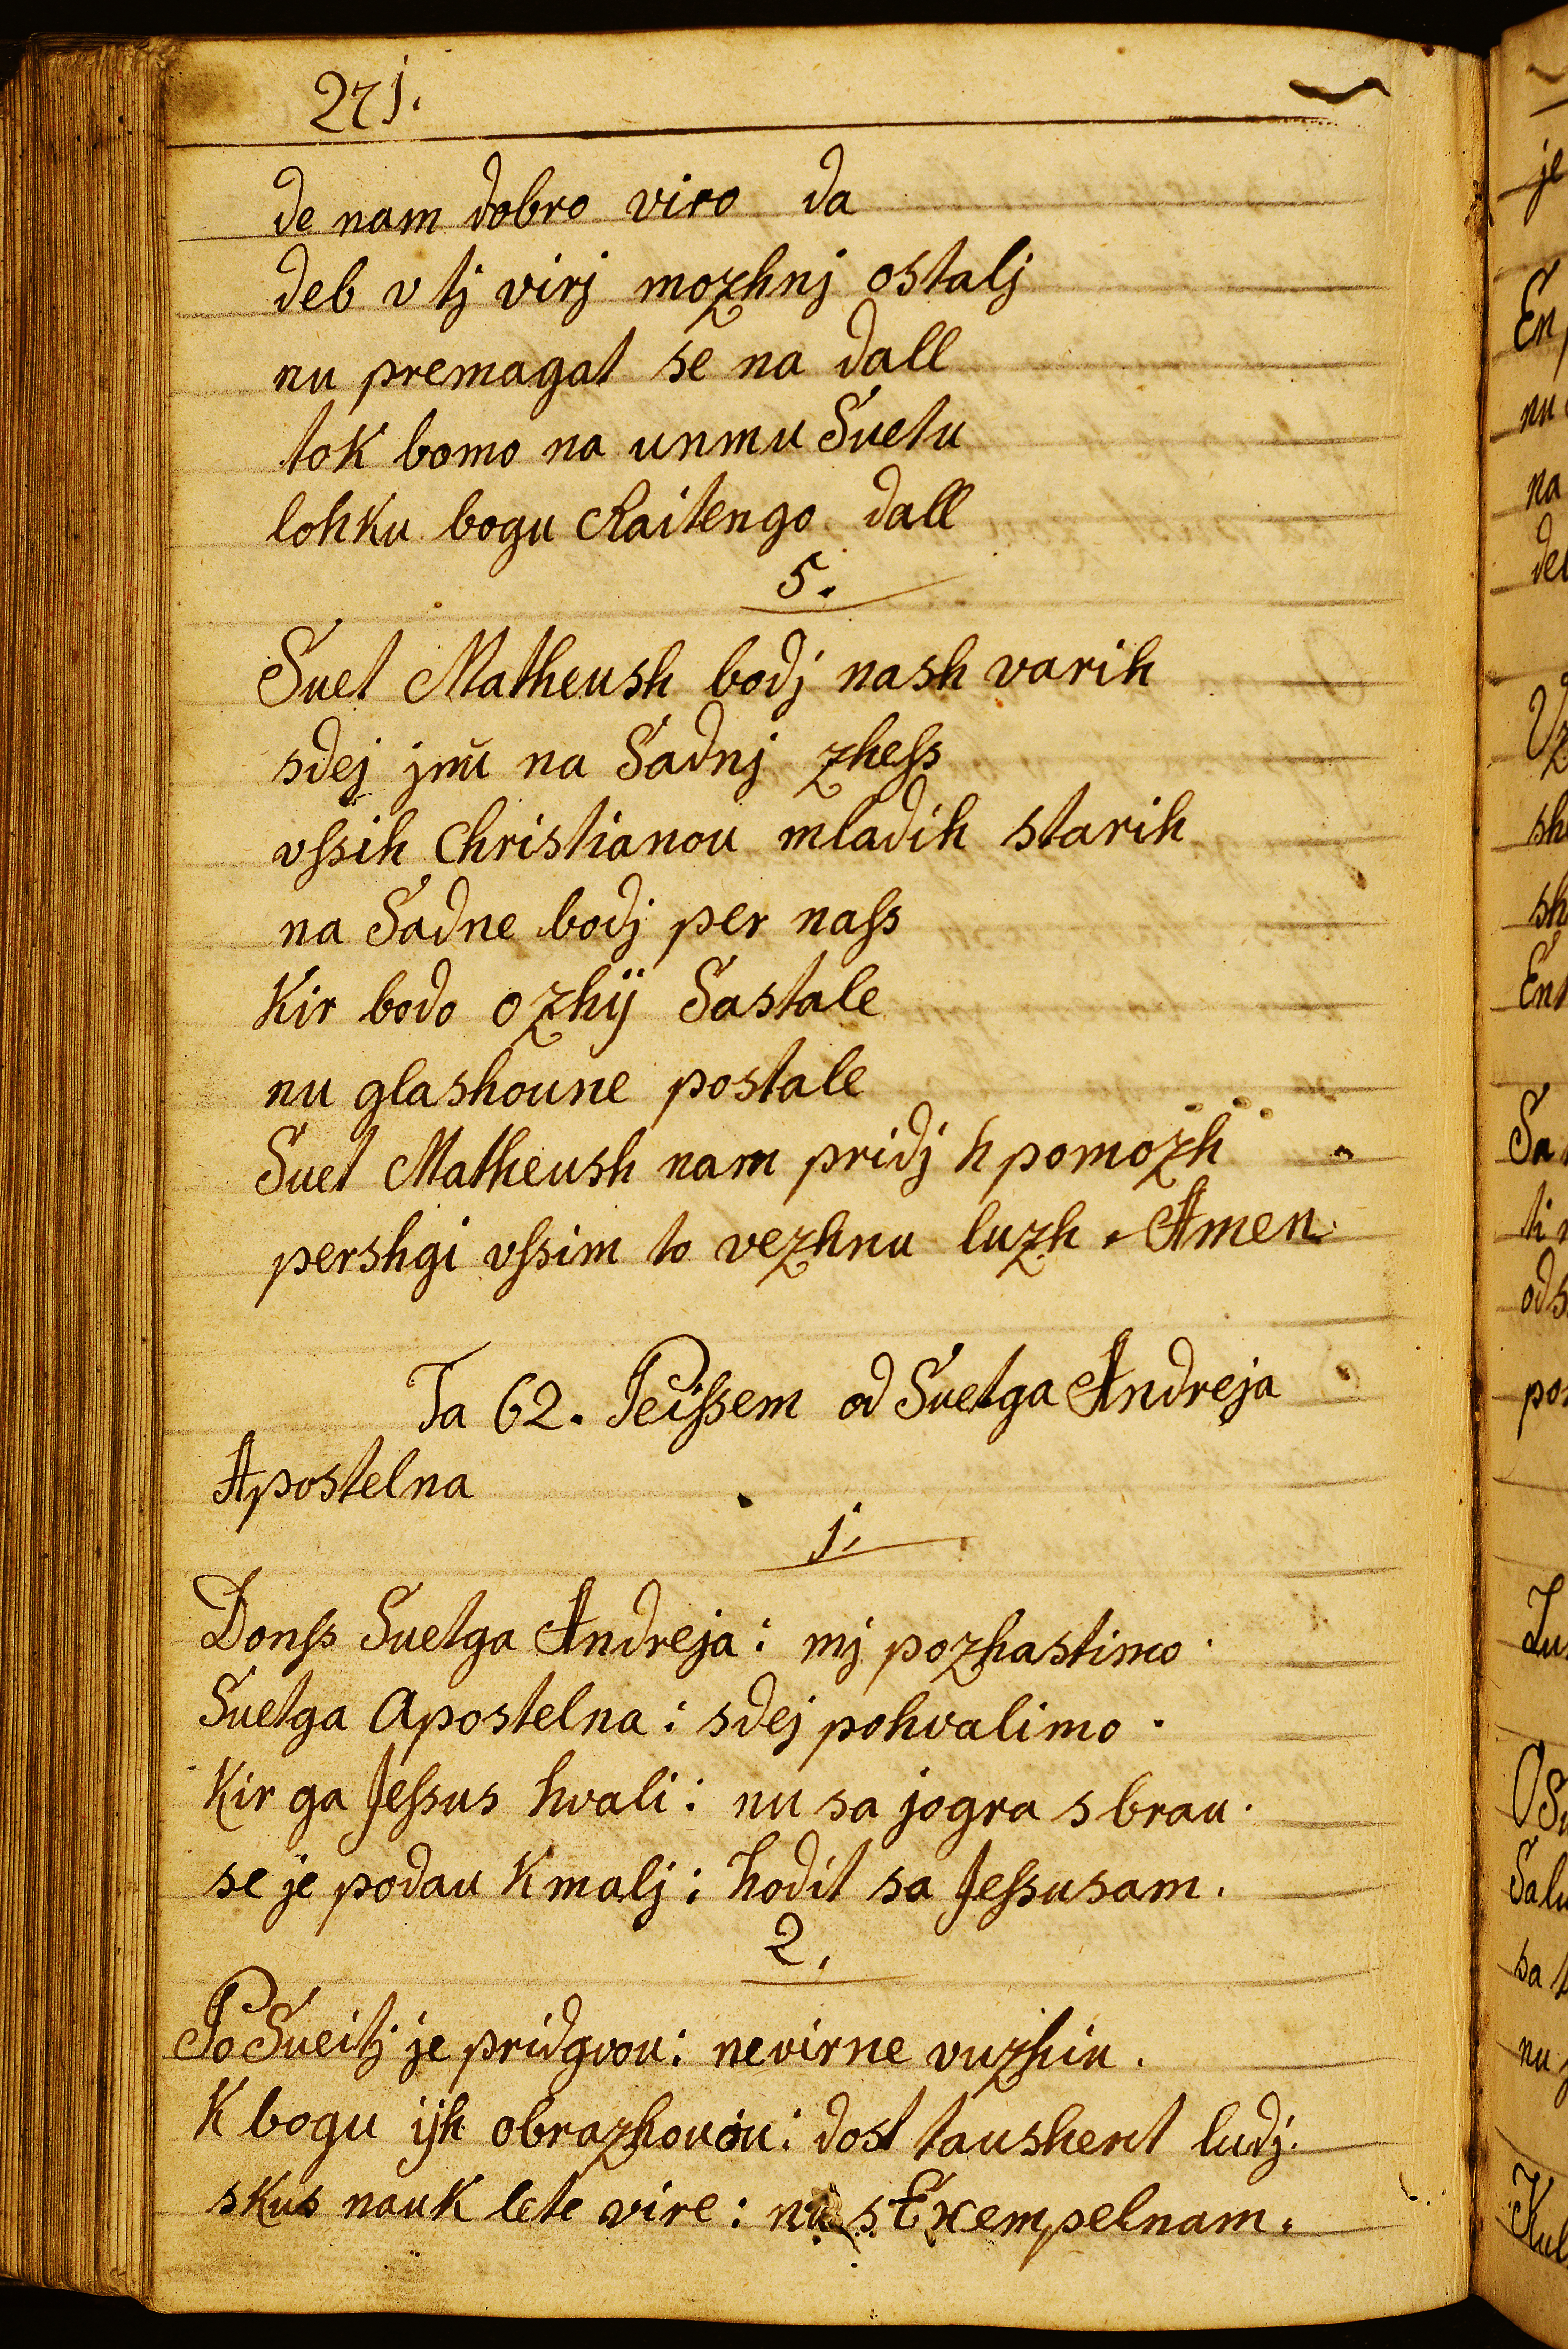 271.
de nam dobro viro da
deb v tj virj mozhnj ostalj
nu premagat se na dall
tok bomo na unmu Suetu
lohku bogu Raitengo dall
5.
Suet Matheush bodj nash varih
sdej jnŭ na Sadnj zheſs
vſsih Christianou mladih starih
na Sadne bodj per naſs
Kir bodo ozhÿ Sastale
nu glashoune postale
Suet Matheush nam pridj h pomozh
pershgi vſsim to vezhnu luzh. Amen.
Ta 62. Peiſsem od Suetga Andreja
Apostelna
j.
Donſs Suetga Andreja: mj pozhastimo.
Suetga Apostelna: sdej pohvalimo.
Kir ga Jeſsus hvali: nu sa jogra sbrau.
se je podau Kmalj: hodit sa Jeſsusam.
2.
Po Sueitj je pridgvou: nevirne vuzhiu.
K bogu ijh obrazhouou: dost taushent ludj.
skus nauK lete vire: nu s Exempelnam.